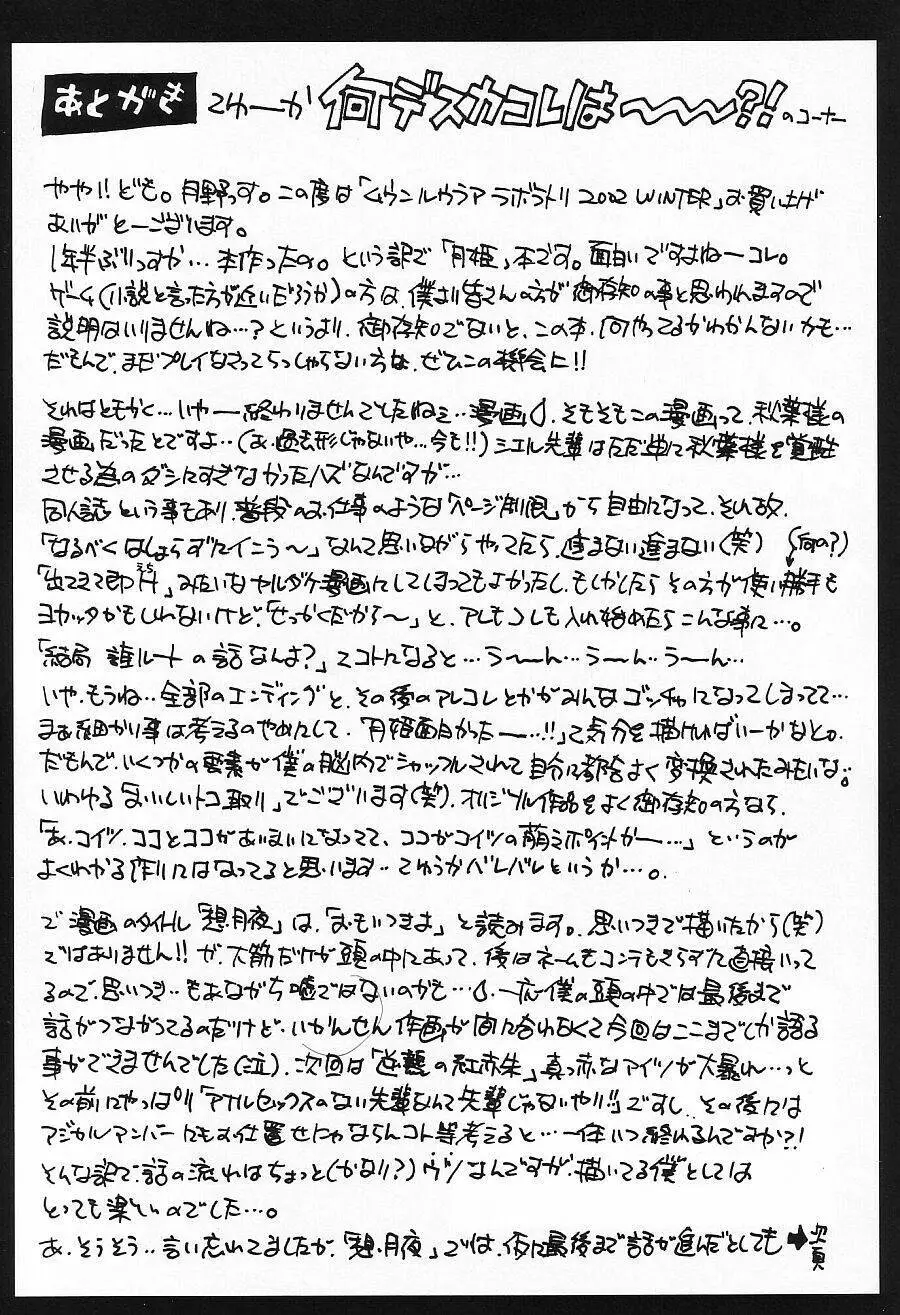 あとがき てゆーか 何デスカコレはー~~~?! のコーナー
やや!!ども。月野っす。この度は「ムウンルウラア ラボラトリ 2002 WINTER」お買い上げ
ありがとーございます。
1年半ぶりっすか…本作ったの。という訳で「月姫」本です。面白いですよねーコレ。
ゲーム(小説と言った方が近いだろうか)の方は、僕より皆さんの方が御存知の事と思われますので
説明はいりませんね…?というより、御存知でないと、この本、何やってるかわかんないかも…
だもんで、まだプレイなさってらっしゃらない方は、ぜひこの機会に!!
それはともかく…いやー終わりませんでしたねェ…漫画。そもそもこの漫画って、秋葉様の
漫画だったとですよ…(あ、過去形じゃないや…今も!!)シエル先輩はただ単に秋葉様を覚醒
させる為のダシにすぎなかったハズなんですが…
同人誌という事もあり、普段のお仕事のような「ページ制限」から自由になって、それ故、
「なるべくはしょらずにイこう~」なんて思いながらやってたら、進まない進まない(笑) (何の?)
「出てきて即」みたいなヤルダケ漫画にしてしまってもよかったし、もしかしたらその方が使い勝手も
ヨカッタかもしれないけど、「せっかくだから~」と、アレもコレも入れ始めたらこんな事に…。
「結局 誰ルートの話なんよ?」てコトになると…う~~ん…う~ん…う~ん…
いや、もうね…全部のエンディングと、その後のアレコレとかがみんなゴッチャになってしまってて…
まぁ細かい事は考えるのやめにして、「月姫面白かったー…!!」て気分を描ければいーかなと。
だもんで、いくつかの要素が僕の脳内でシャッフルされて自分に都合よく変換されたみたいな。
いわゆる「おいしいトコ取り」でございます(笑)。オリジナル作品をよく御存知の方なら、
「あ、コイツ、ココとココがあいまいになってて、ココがコイツの萌えポイントかー…」というのが
よくわかる作りにはなってると思います…てゆうかバレバレというか…。
で漫画のタイトル「想月夜」は、「おもいつきよ」と読みます。思いつきで描いたから(笑)
ではありません!!が、大筋だけが頭の中にあって、後はネームもコンテもきらずに直接いって
るので、思いつき…もあながち嘘ではないのかも…。一応僕の頭の中では最後まで
話がつながってるのだけど、いかんせん作画が間に合わなくて今回はここまでしか語る
事ができませんでした(泣)。次回は「逆襲の紅赤朱」真っ赤なアイツが大暴れ…っと
その前にやっぱり「アナルセックスのない先輩なんて先輩じゃないやい!!」ですし、その後には
マジカルアンバーにもお仕置せにゃならんコト等考えると…一体いつ終わるんですか?!
そんな訳で、話の流れはちょっと(かなり?)ヴツなんですが、描いてる僕としては
とっても楽しいのでした…。
あ、そうそう…言い忘れてましたが、「想月夜」では、仮に最後まで話が進んだとしても →次頁